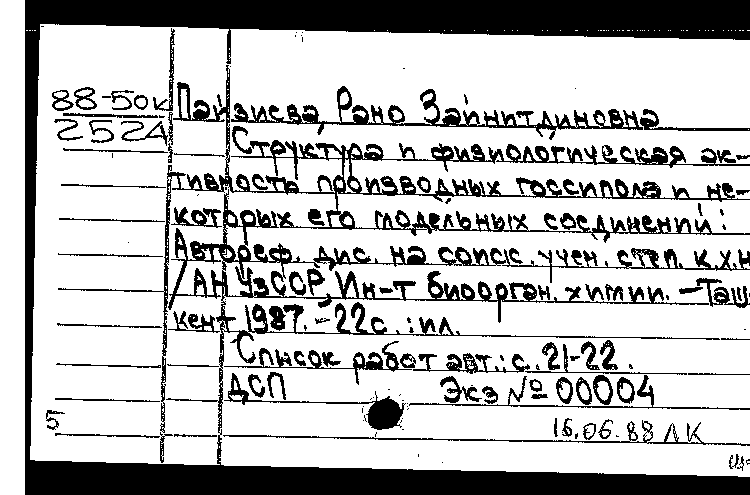 88-50к Пайзиева, Рано Зайнитдиновна
2524 Структура и физиологическая ак-
тивность производных госсипола и не-
которых его модельных соединений:
Автореф. дис. на соиск. учен. степ. к.х.н
/АН УзССР, Ин-т биоорган. химии. – Таш-
кент 1987. – 22с. : ил.
Список работ авт.: с. 21-22.
ДСП Экз № 00004
5
16.06.88 ЛК